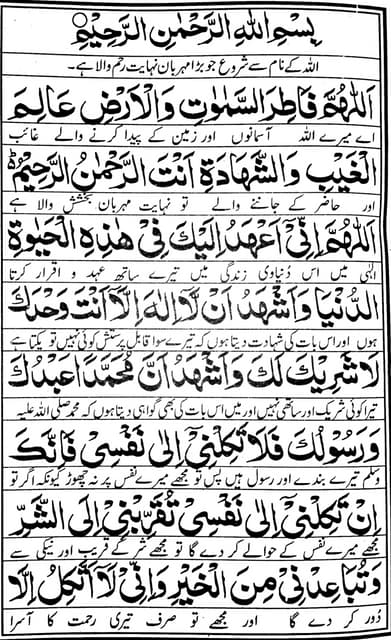 بِسْمِ اللهِ الرَّحْمٰنِ الرَّحِيْمِ
اللہ کے نام سے شروع جو بڑا مہربان نہایت رحم والا ہے۔
اَللّٰهُمَّ فَاطِرَ السَّمٰوٰتِ وَالْاَرْضِ عَالِمَ
اے میرے اللہ آسمانوں اور زمین کے پیدا کرنے والے غائب
الْغَيْبِ وَالشَّهَادَةِ اَنْتَ الرَّحْمٰنُ الرَّحِيْمُ ؕ
اور حاضر کے جاننے والے تو نہایت مہربان بخشش والا ہے
اَللّٰهُمَّ اِنِّيْ اَعْهَدُ اِلَيْكَ فِيْ هٰذِهِ الْحَيٰوةِ
الٰہی میں اس دنیاوی زندگی میں تیرے ساتھ عہد و اقرار کرتا
الدُّنْيَا وَاَشْهَدُ اَنْ لَّا اِلٰهَ اِلَّا اَنْتَ وَحْدَكَ
ہوں اور اس بات کی شہادت دیتا ہوں کہ تیرے سوا قابل پرستش کوئی نہیں تو یکتا ہے
لَا شَرِيْكَ لَكَ وَاَشْهَدُ اَنَّ مُحَمَّدًا عَبْدُكَ
تیرا کوئی شریک اور ساتھی نہیں اور میں اس بات کی بھی گواہی دیتا ہوں کہ محمد صلی اللہ علیہ
وَرَسُوْلُكَ فَلَا تَكِلْنِيْ اِلٰى نَفْسِيْ فَاِنَّكَ
وسلم تیرے بندے اور رسول ہیں پس تو مجھے میرے نفس پر نہ چھوڑ کیونکہ اگر تو
اِنْ تَكِلْنِيْ اِلٰى نَفْسِيْ تُقَرِّبْنِيْ اِلَى الشَّرِّ
مجھے میرے نفس کے حوالے کر دے گا تو مجھے شر کے قریب اور نیکی سے
وَتُبَاعِدْنِيْ مِنَ الْخَيْرِ وَاِنِّيْ لَا اَتَّكِلُ اِلَّا
دور کر دے گا اور مجھے تو صرف تیری رحمت کا آسرا